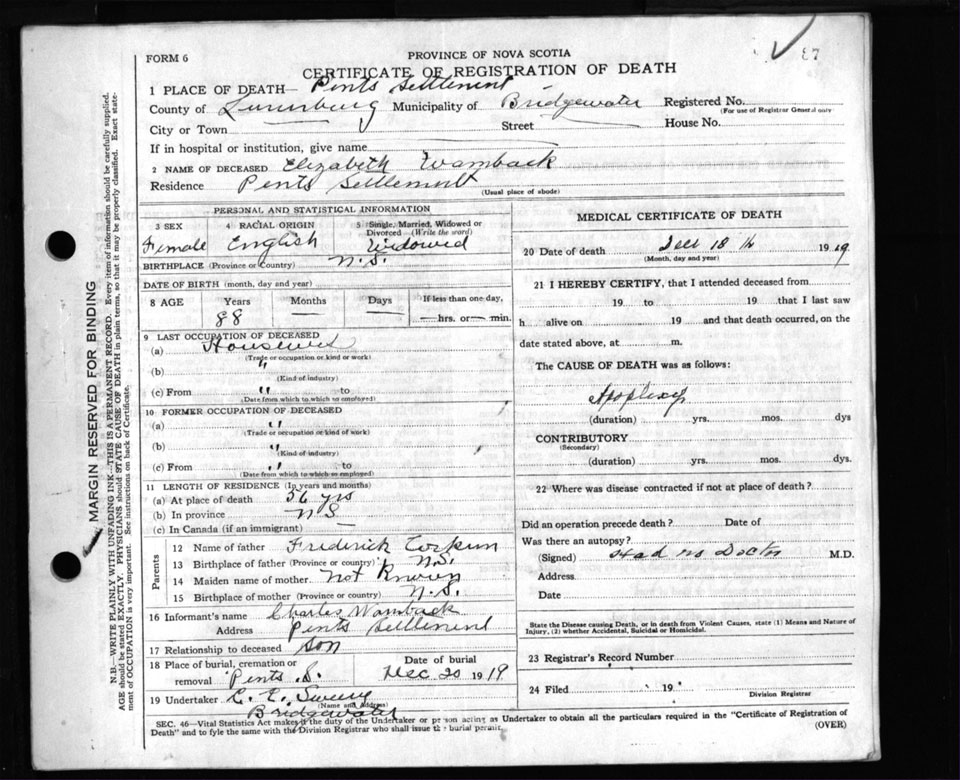 87
FORM 6
PROVINCE OF NOVA SCOTIA
CERTIFICATE OF REGISTRATION OF DEATH
1 PLACE OF DEATH— Pents Settlement
County of Lunenburg Municipality of Bridgewater Registered No.
(For use of Registrar General only
City or Town Street House No.
If in hospital or institution, give name
2 NAME OF DECEASED Elizabeth Wamback
Residence Pents Settlement
(Usual place of abode)
PERSONAL AND STATISTICAL INFORMATION
3 SEX 4 RACIAL ORIGIN 5 Single, Married, Widowed or Divorced (Write the word)
Female English Widowed
BIRTHPLACE (Province or Country) N.S.
DATE OF BIRTH (month, day and year)
8 AGE Years Months Days If less than one day,
88 — — —hrs. or— min.
9 LAST OCCUPATION OF DECEASED
(a) Housewife
(Trade or occupation or kind or work)
(b) "
(Kind of industry)
(c) From " to
(Date from which to which so employed)
10 FORMER OCCUPATION OF DECEASED
(a) "
(Trade or occupation or kind of work)
(b) "
(Kind of industry)
(c) From " to
(Date from which to which so employed)
11 LENGTH OF RESIDENCE (In years and months)
(a) At place of death 56 yrs
(b) In province N S
(c) In Canada (if an immigrant) —
Parents
12 Name of father Frederick Corkum
13 Birthplace of father (Province or country) N.S.
14 Maiden name of mother Not Known
15 Birthplace of mother (Province or country) N.S.
16 Informant's name Charles Wamback
Address Pents Settlement
17 Relationship to deceased Son
18 Place of burial, cremation or removal Pents S. Date of burial Dec 20 1919
19 Undertaker C. E. Sweeny
(Name and Address)
Bridgewater
MEDICAL CERTIFICATE OF DEATH
20 Date of death Dec 18 th 1919
(Month, day and year)
21 I HEREBY CERTIFY, that I attended deceased from
19 to 19 that I last saw
h alive on 19 and that death occurred, on the
date stated above, at m.
The CAUSE OF DEATH was as follows:
Apoplexy
(duration) yrs. mos. dys
CONTRIBUTORY
(Secondary)
(duration) yrs. mos. dys.
22 Where was disease contracted if not at place of death?
Did an operation precede death? Date of
Was there an autopsy?
(Signed) Had no Doctor M.D.
Address
Date
State the Disease causing Death, or in death from Violent Causes, state (1) Means and Nature of
Injury, (2) whether Accidental, Suicidal or Homicidal.
23 Registrar's Record Number
24 Filed 19
Division Registrar
SEC. 46—Vital Statistics Act makes it the duty of the Undertaker or person acting as Undertaker to obtain all the particulars required in the "Certificate of Registration of
Death" and to fyle the same with the Division Registrar who shall issue the burial permit.
(OVER)
MARGIN RESERVED FOR BINDING
N.B.—WRITE PLAINLY WITH UNFADING INK—THIS IS A PERMANENT RECORD. Every item of information should be carefully supplied.
AGE should be stated EXACTLY. PHYSICIANS should STATE CAUSE OF DEATH in plain terms, so that it may be properly classified. Exact state-
ment of OCCUPATION is very important. See instructions on back of Certificate.